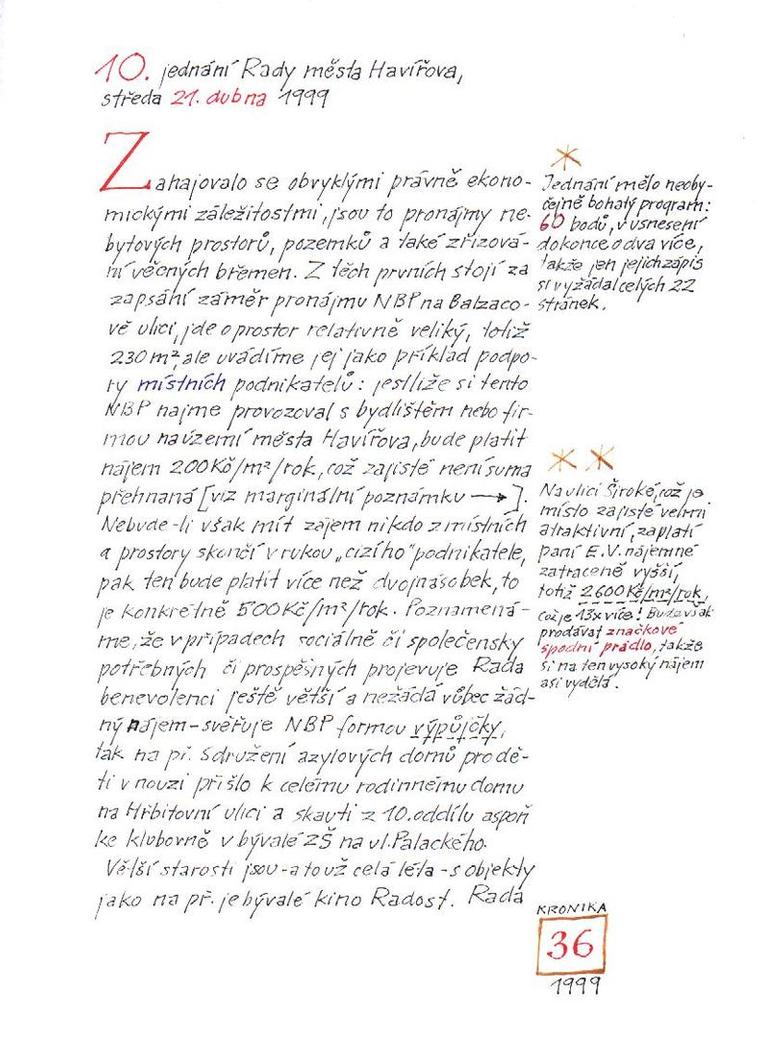 10. jednání Rady města Havířova,
středa 21. dubna 1999
Zahajovalo se obvyklými právně ekono-
mickými záležitostmi, jsou to pronájmy ne-
bytových prostorů, pozemků a také zřizová-
ní věcných břemen. Z těch prvních stojí za
zapsání záměr pronájmu NBP na Balzaco-
vě ulici, jde o prostor relativně veliký, totiž
230 m², ale uvádíme jej jako příklad podpo-
ry místních podnikatelů: jestliže si tento
NBP najme provozoval s bydlištěm nebo fir-
mou na území města Havířova, bude platit
nájem 200 Kč/m²/rok, což zajisté není suma
přehnaná [viz marginální poznámku →].
Nebude-li však mít zájem nikdo z místních
a prostory skončí v rukou „cizího" podnikatele,
pak ten bude platit více než dvojnásobek, to
je konkrétně 500 Kč/m²/rok. Poznamená-
me, že v případech sociálně či společensky
potřebných či prospěšných projevuje Rada
benevolenci ještě větší a nežádá vůbec žád-
ný nájem - svěřuje NBP formou výpůjčky,
tak na př. Sdružení azylových domů pro dě-
ti v nouzi přišlo k celému rodinnému domu
na Hřbitovní ulici a skauti z 10. oddílu aspoň
ke klubovně v bývalé ZŠ na ul. Palackého.
Větší starosti jsou - a to už celá léta - s objekty
jako na př. je bývalé kino Radost. Rada
*
Jednání mělo neoby-
čejně bohatý program:
60 bodů, v usnesení
dokonce o dva více,
takže jen jejich zápis
si vyžádal celých 22
stránek.
* *
Na ulici Široké, což je
místo zajisté velmi
atraktivní, zaplatí
paní E.V. nájemné
zatraceně vyšší,
totiž 2600 Kč/m²/rok,
což je 13x více! Bude však
prodávat značkové
spodní prádlo, takže
si na ten vysoký nájem
asi vydělá.
KRONIKA
36
1999